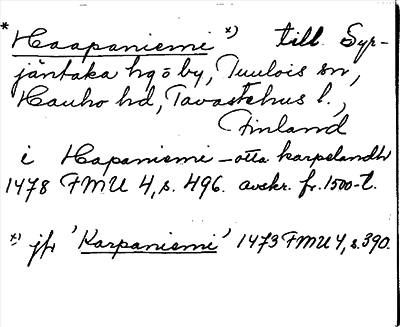 * Haapaniemi *) till Syr-
jäntaka hg o by, Tuulois sn,
Hauho hd, Tavastehus l.,
Finland
i Hapaniemi-otta karpelandh
1478 FMU 4, s. 496. avskr. fr. 1500-t.
*) jfr 'Karpaniemi' 1473 FMU 4, s. 390.